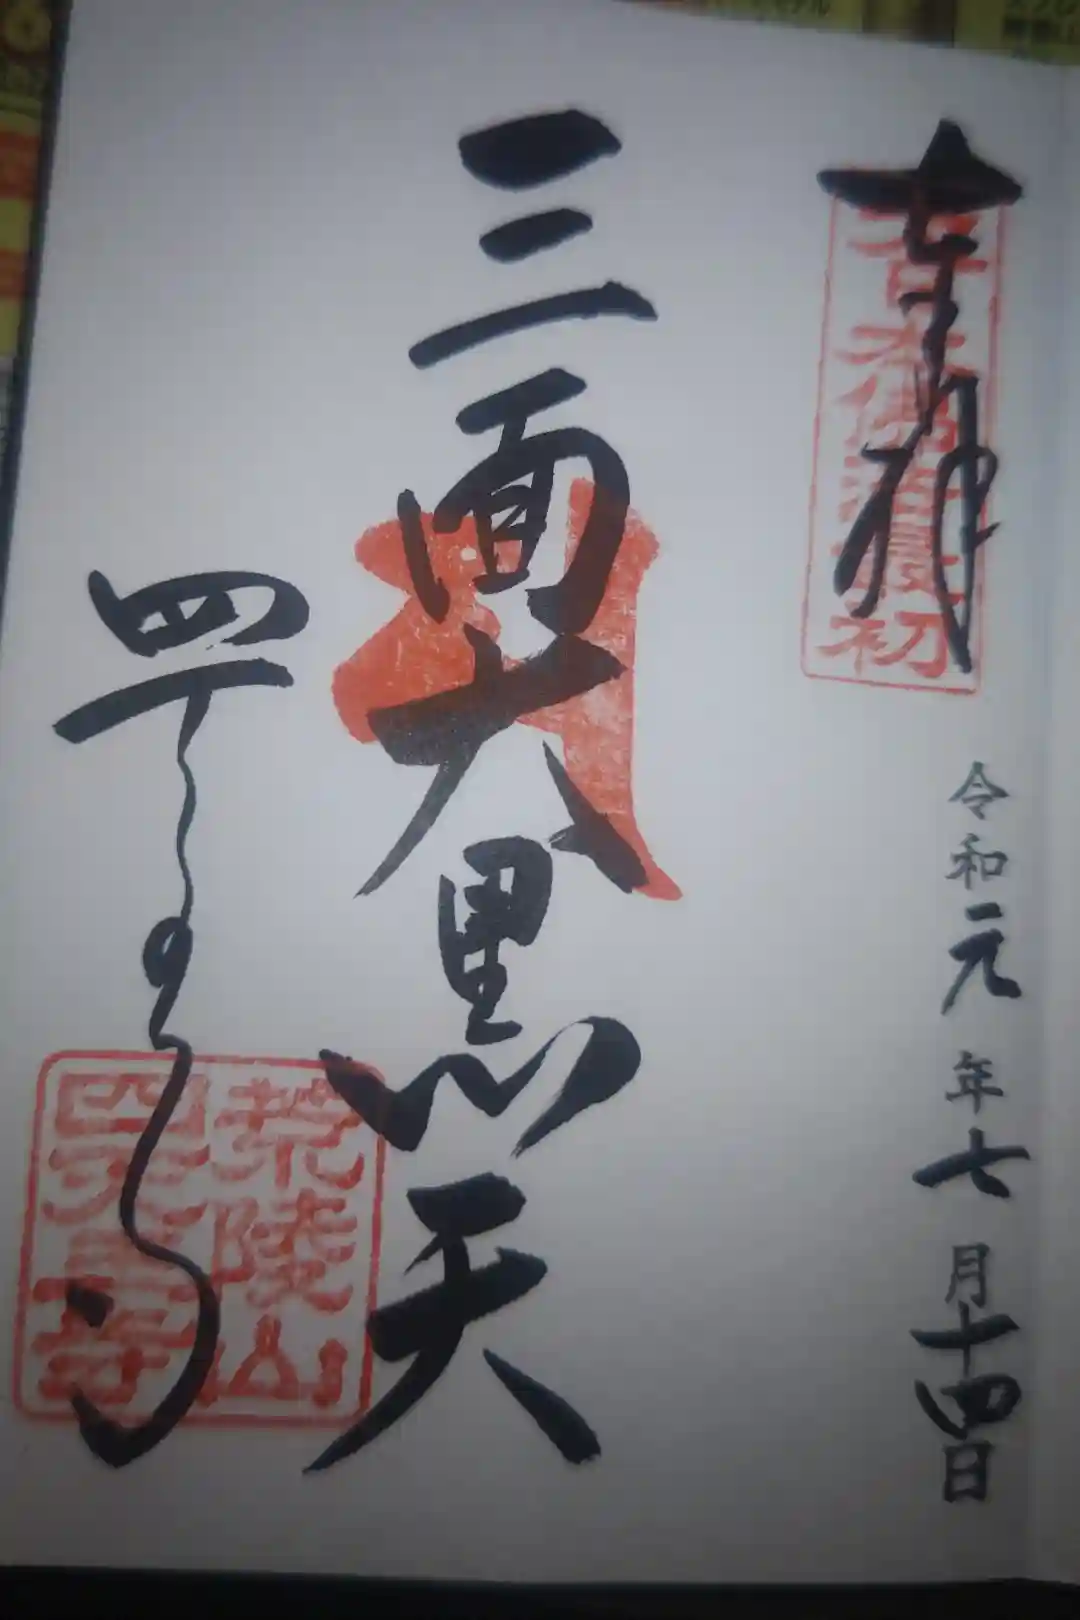 奉拝
大日本佛法最初
令和元年七月十四日
三面大黒天
四天王寺
荒陵山
四天王寺